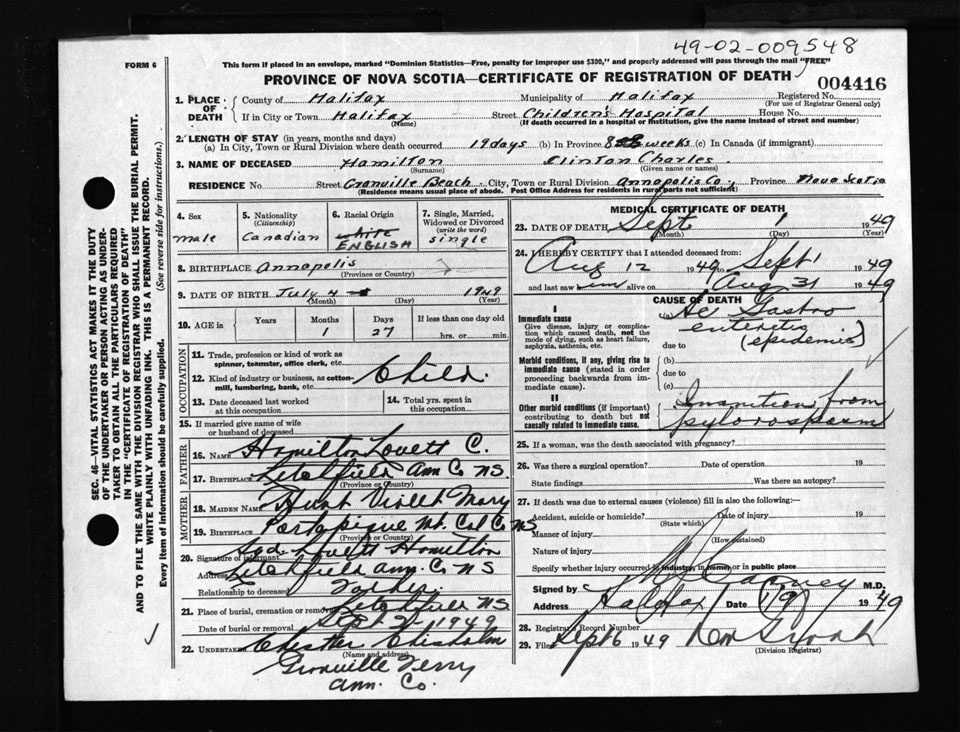 49-02-009548
FORM 6
This form if placed in an envelope, marked "Dominion Statistics—Free, penalty for improper use $300," and properly addressed will pass through the mail "FREE"
PROVINCE OF NOVA SCOTIA—CERTIFICATE OF REGISTRATION OF DEATH
004416
1. PLACE OF DEATH
County of Halifax Municipality of Halifax Registered No.
(For use of Registrar General only)
If in City or Town Halifax Street Children's Hospital House No.
(Name) (If death occurred in a hospital or institution, give the name instead of street and number)
2. LENGTH OF STAY (in years, months and days)
(a) In City, Town or Rural Division where death occurred 19 days (b) In Province 8 weeks (c) In Canada (if immigrant)
3. NAME OF DECEASED Hamilton Clinton Charles
(Surname) (Given name or names)
RESIDENCE No. Street Granville Beach City, Town or Rural Division Annapolis Co., Province Nova Scotia
(Residence means usual place of abode. Post Office Address for residents in rural parts not sufficient)
SEC. 46—VITAL STATISTICS ACT MAKES IT THE DUTY
OF THE UNDERTAKER OR PERSON ACTING AS UNDER-
TAKER TO OBTAIN ALL THE PARTICULARS REQUIRED
IN THE "CERTIFICATE OF REGISTRATION OF DEATH"
AND TO FILE THE SAME WITH THE DIVISION REGISTRAR WHO SHALL ISSUE THE BURIAL PERMIT.
WRITE PLAINLY WITH UNFADING INK. THIS IS A PERMANENT RECORD.
Every item of information should be carefully supplied. (See reverse side for instructions.)
4. Sex
male
5. Nationality
(Citizenship)
Canadian
6. Racial Origin
white
ENGLISH
7. Single, Married,
Widowed or Divorced
(write the word)
single
8. BIRTHPLACE Annapolis
(Province or County)
9. DATE OF BIRTH July 4 1949
(Month) (Day) (Year)
10. AGE in Years Months Days If less than one day old
1 27 hrs. or min.
OCCUPATION
11. Trade, profession or kind of work as
spinner, teamster, office clerk, etc.
12. Kind of industry or business, as cotton-
mill, lumbering, bank, etc.
Child.
13. Date deceased last worked
at this occupation
14. Total yrs. spent in
this occupation
15. If married give name of wife
or husband of deceased
FATHER
16. NAME Hamilton Lovett C.
17. BIRTHPLACE Litchfield Ann Co NS
(Province or County)
MOTHER
18. MAIDEN NAME Hunt Violet Mary
19. BIRTHPLACE Portapique Mt. Col Co NS
(Province or County)
20. Signature of informant Sgd. Lovett Hamilton
Address Litchfield Ann. Co NS
Relationship to deceased Father
21. Place of burial, cremation or removal Litchfield NS.
Date of burial or removal Sept 2 - 1949
22. UNDERTAKER Chisholm
(Name and address)
Granville Ferry
Ann. Co.
MEDICAL CERTIFICATE OF DEATH
23. DATE OF DEATH Sept 1 1949
(Month) (Day) (Year)
24. I HEREBY CERTIFY that I attended deceased from:
Aug 12 1949 to Sept 1 1949
and last saw him alive on Aug 31 1949
CAUSE OF DEATH
I
Immediate cause
Give disease, injury or complica-
tion which caused death, not the
mode of dying, such as heart failure,
asphyxia, asthenia, etc.
(a) Ac Gastro
enteritis
due to (epidemic)
Morbid conditions, if any, giving rise to
immediate cause (stated in order
proceeding backwards from im-
mediate cause).
(b)
due to
(c)
II
Other morbid conditions (if important)
contributing to death but not
causally related to immediate cause.
Inanition from
pylorospasm
25. If a woman, was the death associated with pregnancy?
26. Was there a surgical operation? Date of operation 19
State findings Was there an autopsy?
27. If death was due to external causes (violence) fill in also the following:—
Accident, suicide or homicide? Date of injury 19
(State which)
Manner of injury
(How sustained)
Nature of injury
Specify whether injury occurred in industry, in home, or in public place
Signed by Carney M.D.
Address Halifax Date 1949
28. Registrar's Record Number
29. Filed Sept 6 1949
(Division Registrar)